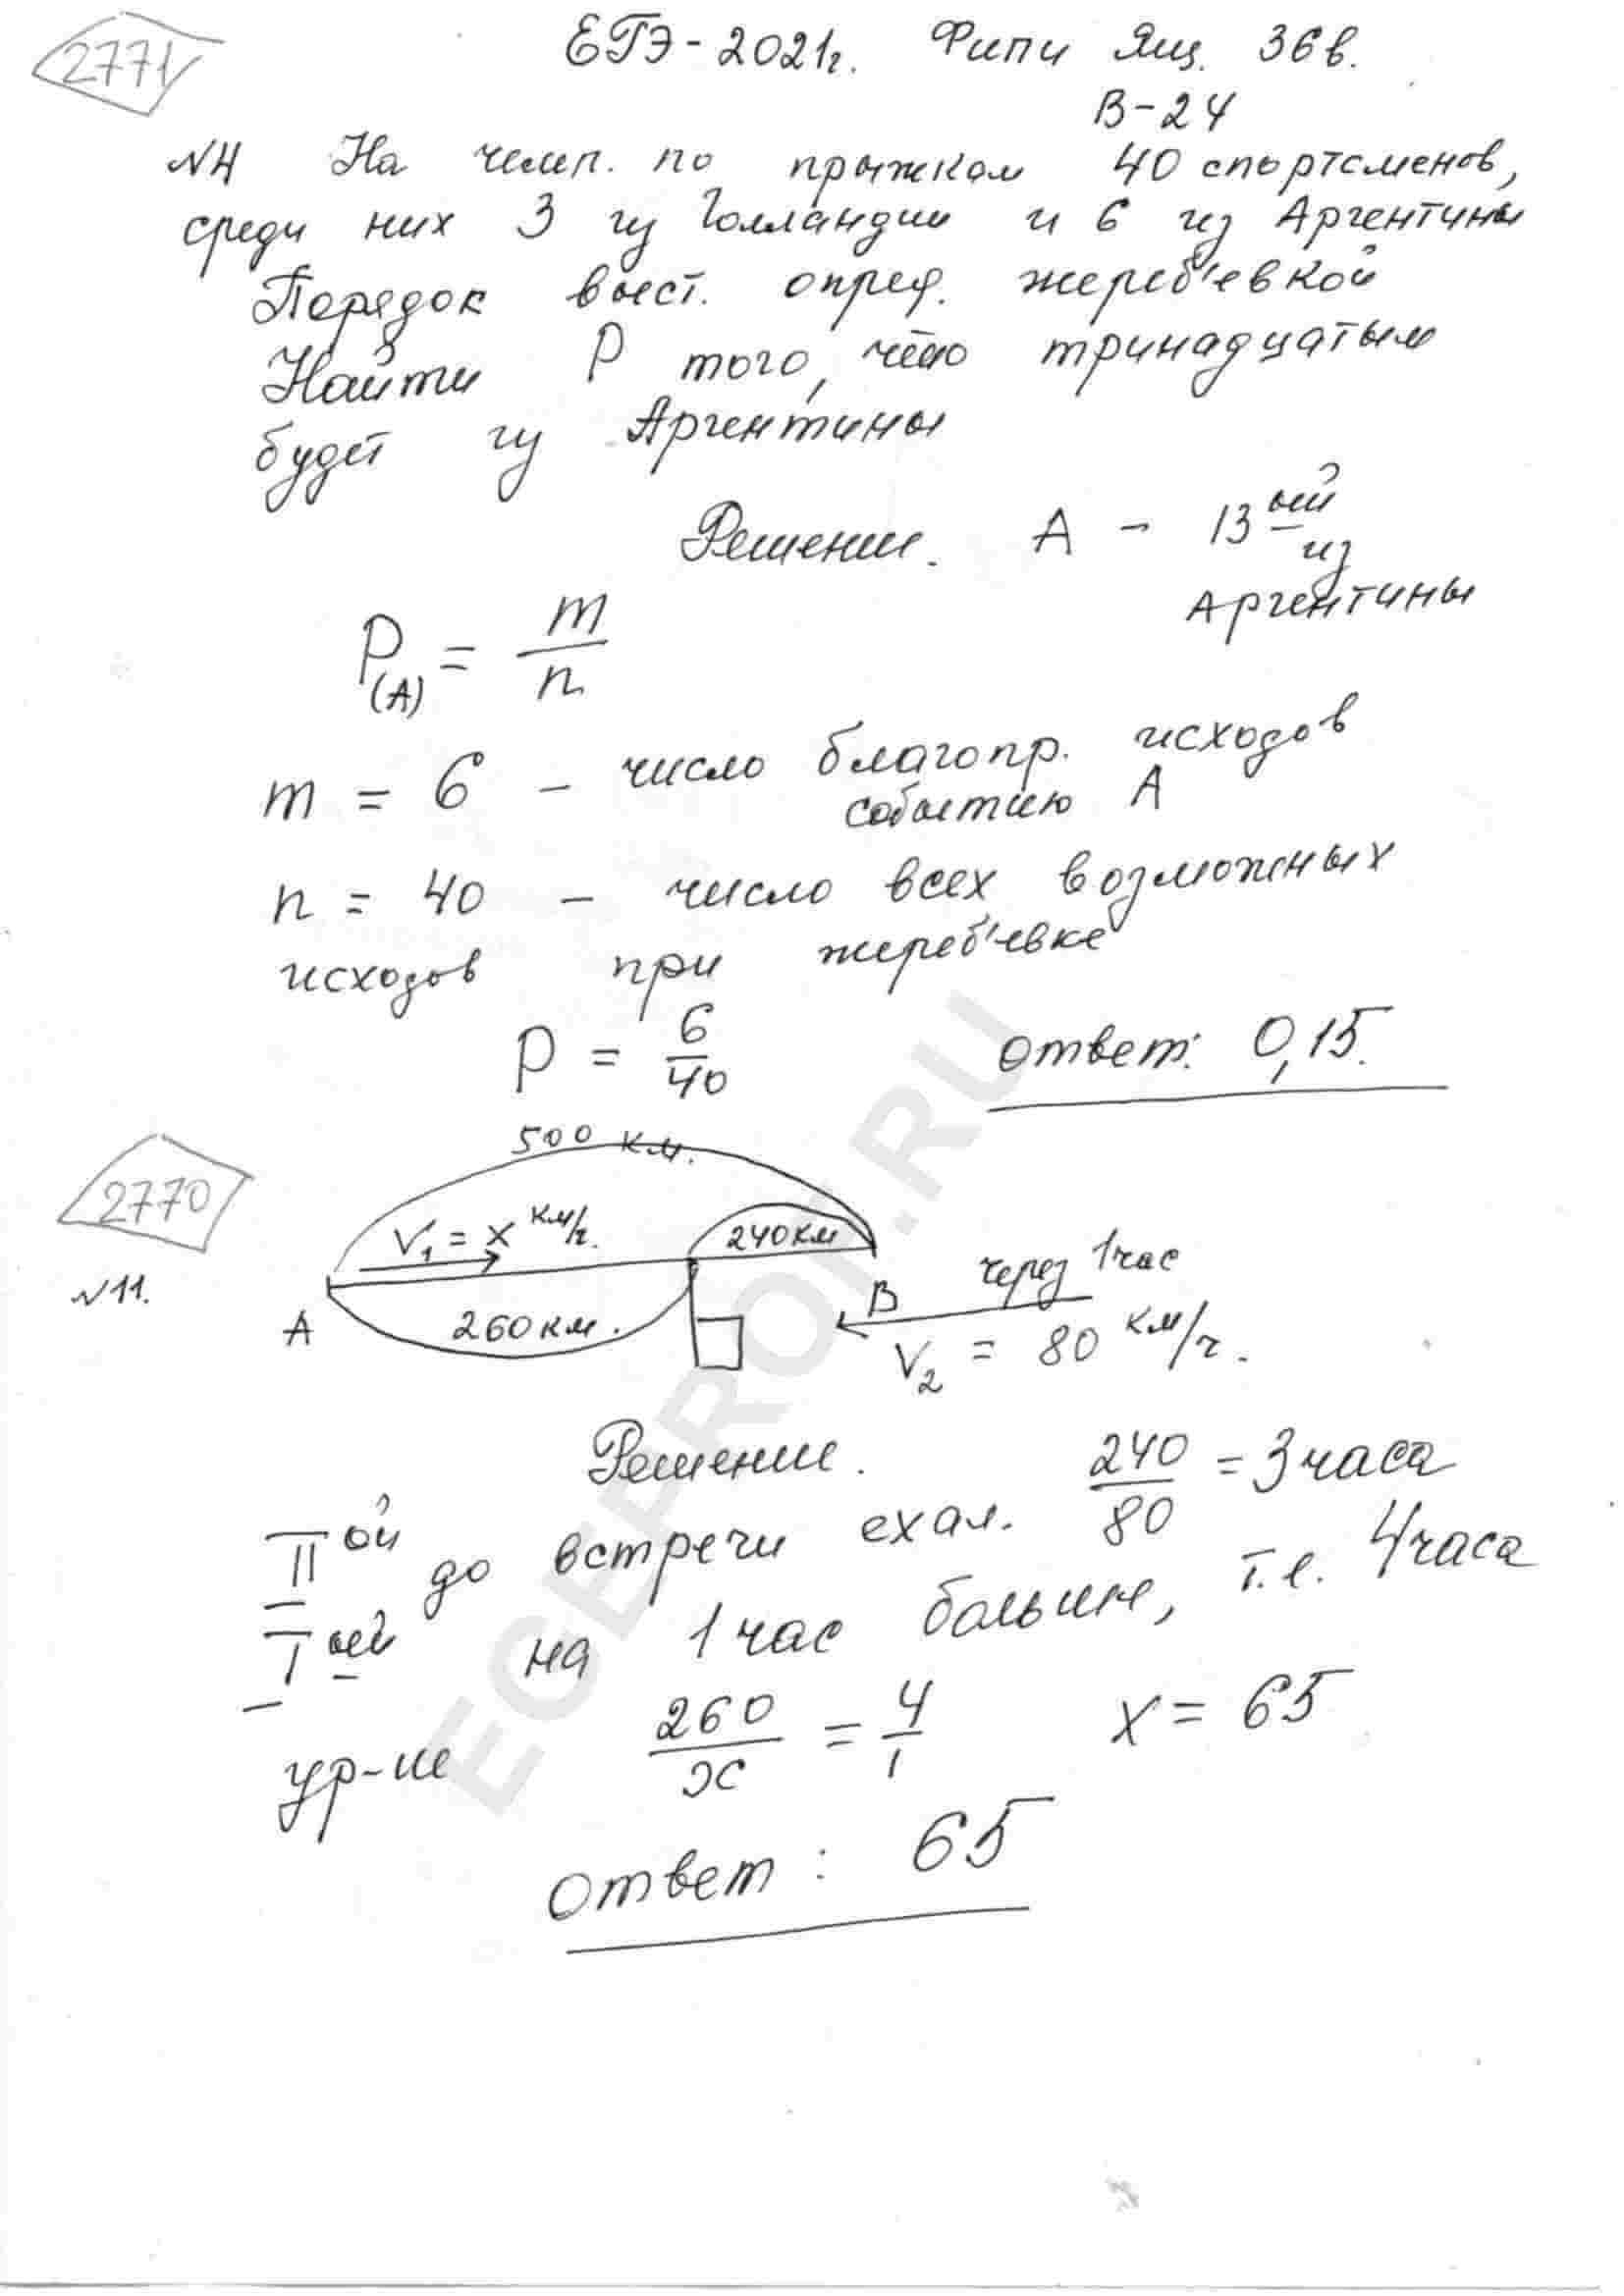 2771
ЕГЭ-2021г. Фипи Ящ. 36в.
В-24
№4 На чемп. по прыжкам 40 спортсменов,
среди них 3 из Голландии и 6 из Аргентины
Порядок выст. опред. жереб'евкой
Найти Р того, что тринадцатым
будет из Аргентины
Решение. А - 13ый из
Аргентины
P(A) = m/n
m = 6 - число благопр. исходов
событию А
n = 40 - число всех возможных
исходов при жереб'евке
P = 6/40 ответ: 0,15.
2770
500 км.
V1 = x км/ч. 240 км
№11. А 260 км. В через 1 час
V2 = 80 км/ч.
Решение. 240/80 = 3 часа
IIой до встречи ехал.
Iый на 1 час больше, т.е. 4 часа
ур-ие 260/x = 4/1 x = 65
Ответ: 65
EGEPROF.RU